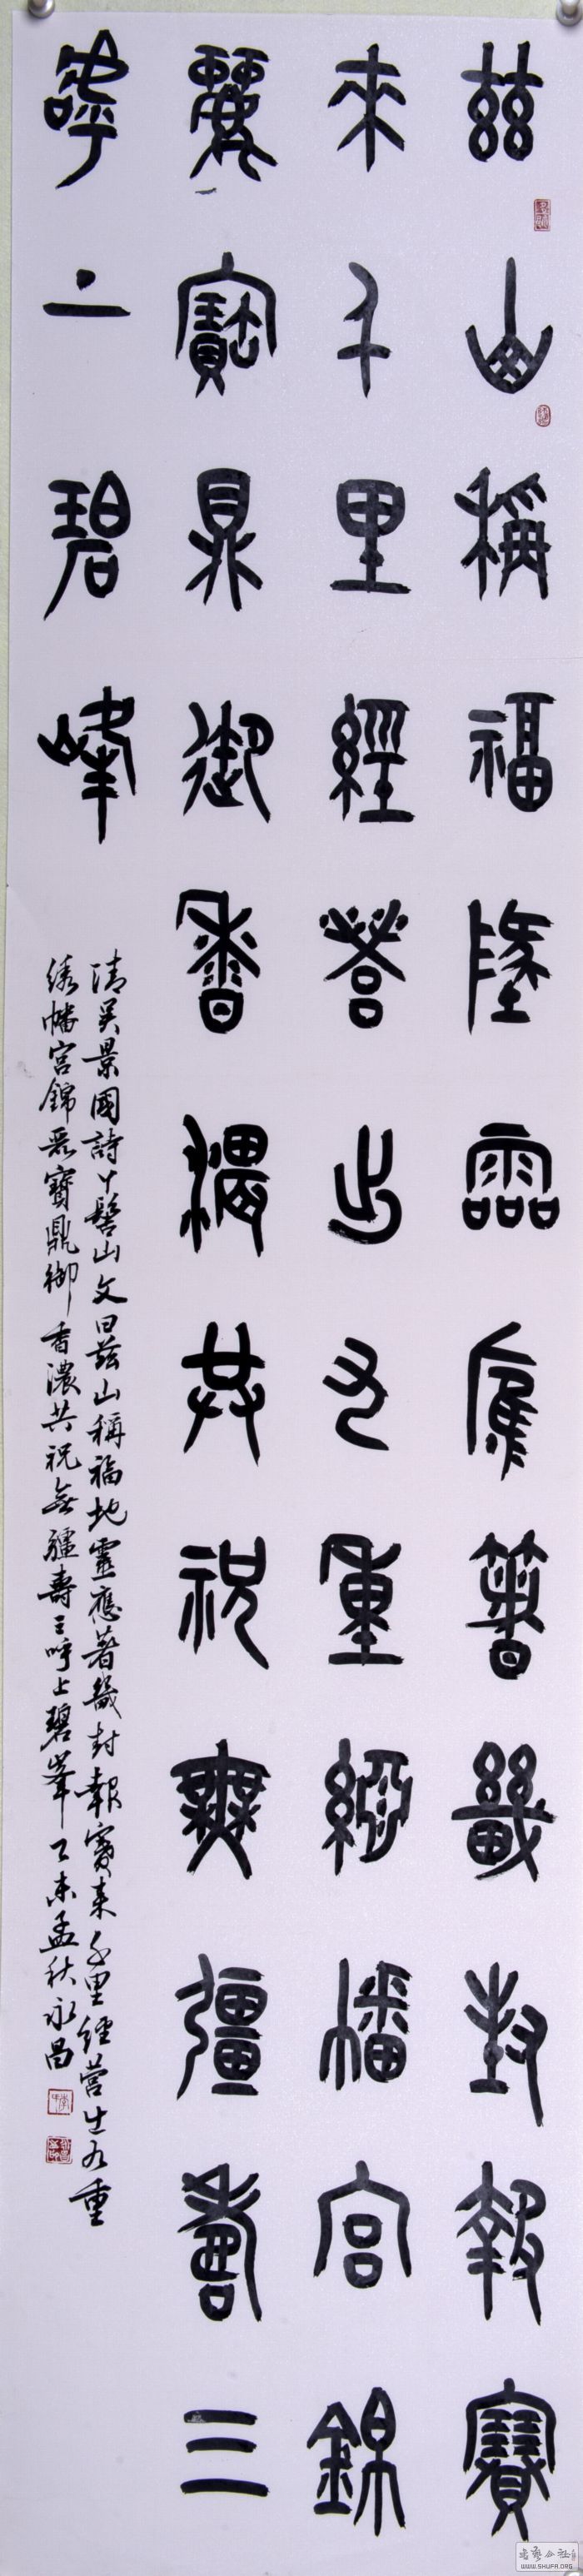 兹山稱福地靈應著畿封報賽
来千里經營出九重繡幡宮錦
麗寶鼎御香濃共祝無疆壽三
嘑二碧峰
清吴景國詩丫髻山文曰兹山稱福地靈應著畿封報賽来千里經營出九重
绣幡宮錦麗寶鼎御香濃共祝無疆壽三呼上碧峯乙未孟秋永昌
WWW.SHUFA.ORG